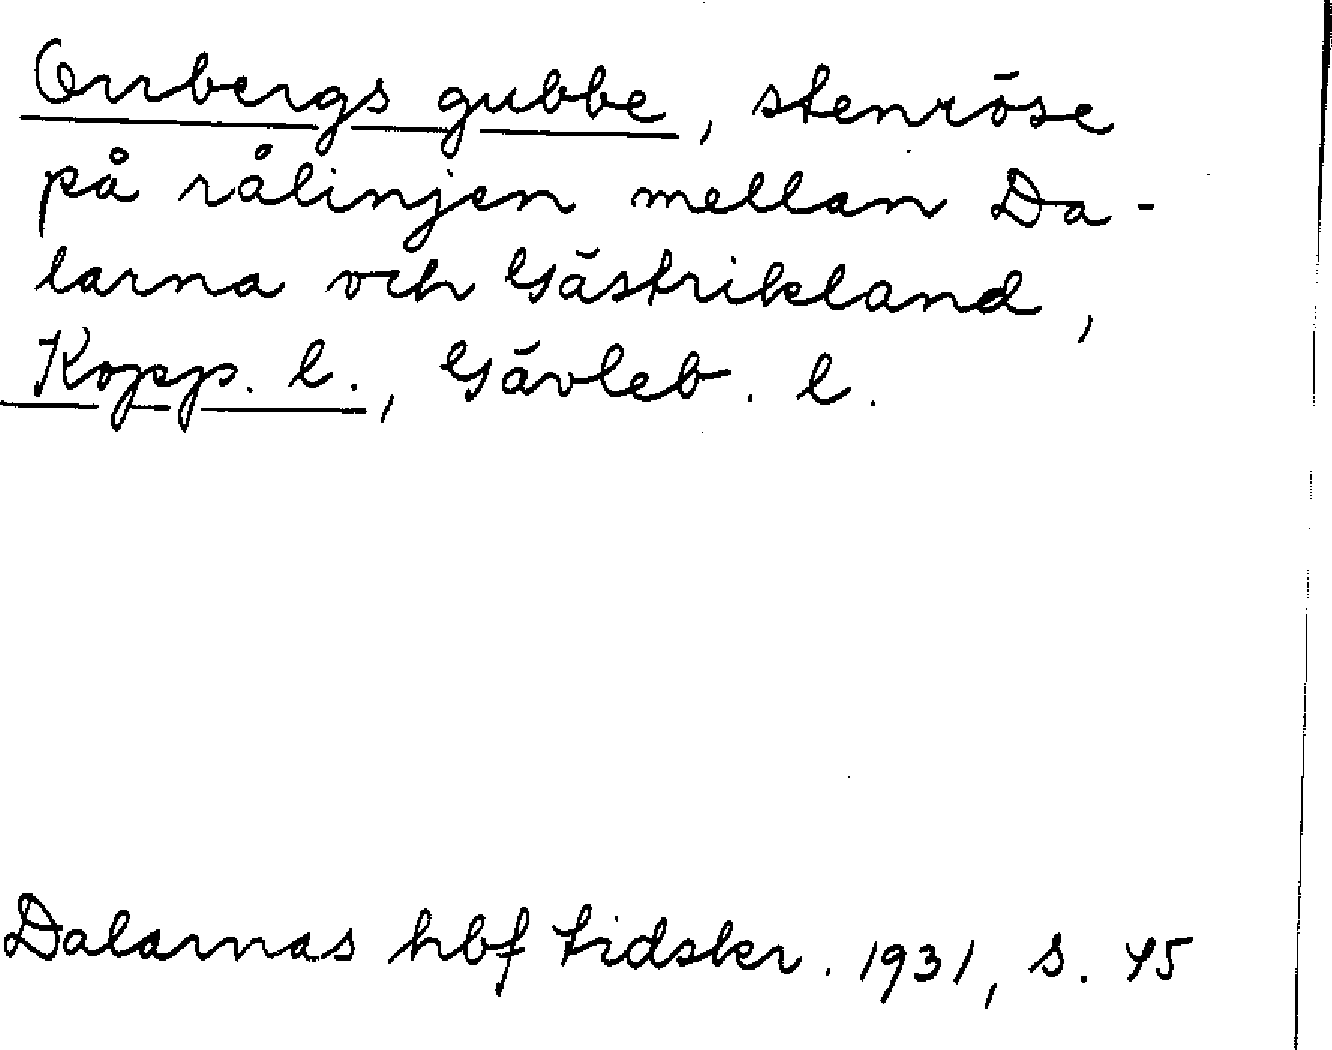 Orrbergs gubbe, stenröse
på rålinjen mellan Da-
larna och Gästrikland,
Kopp. l., Gävleb. l.
Dalarnas hbf tidskr. 1931, s. 45